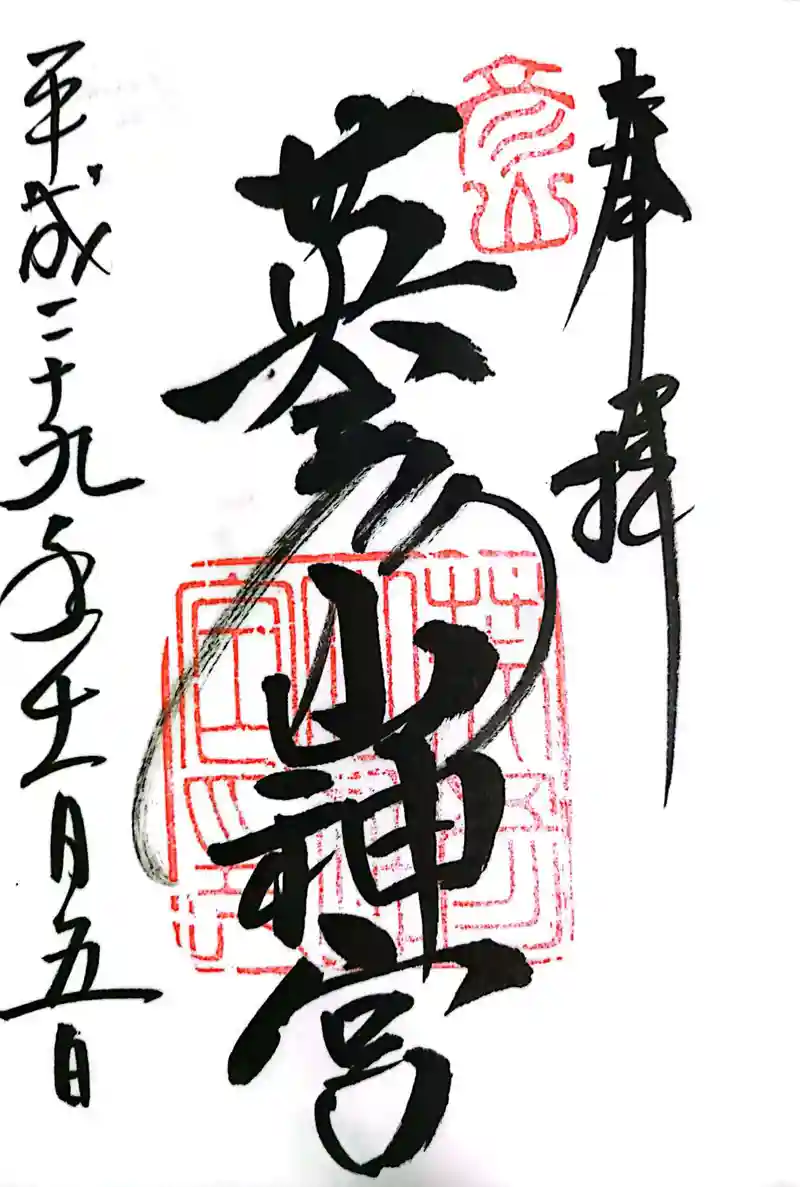 奉拝
彦山
英彦山神宮
平成二十九年十一月五日